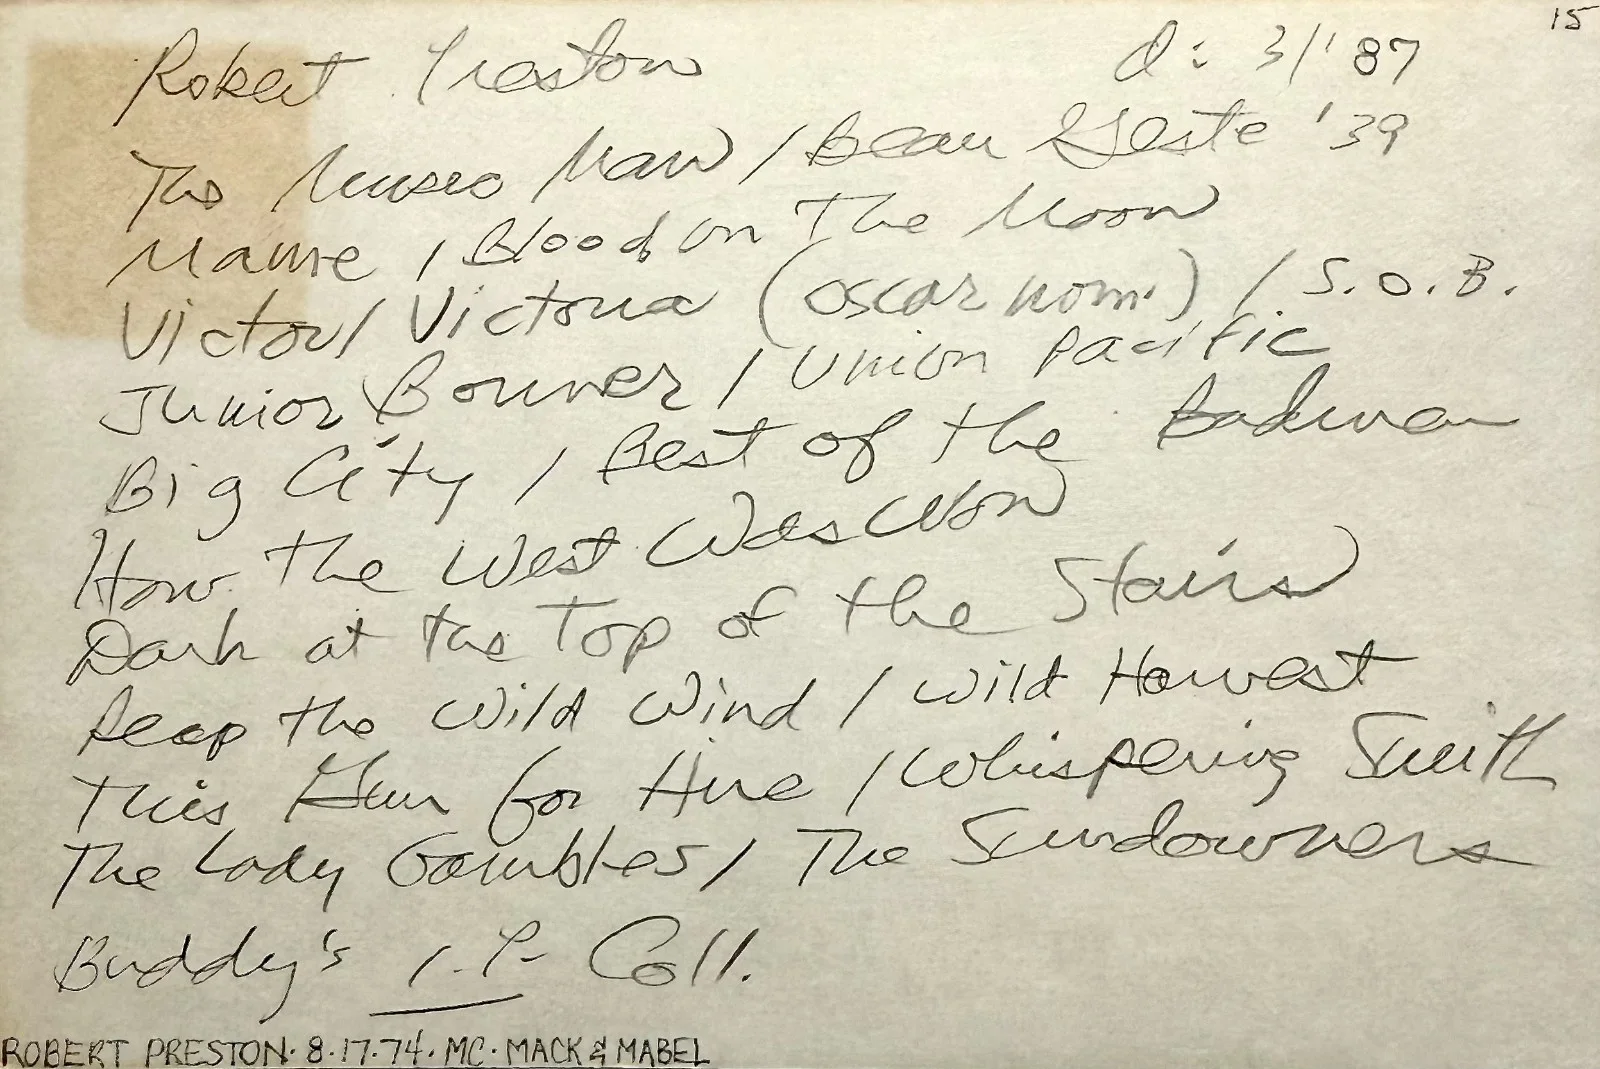 15
Robert Preston d: 3/'87
The Music Man / Beau Geste '39
Mame / Blood on The Moon
Victor/Victoria (Oscar nom.) / S.O.B.
Junior Bonner / Union Pacific
Big City / Best of the Badmen
How The West Was Won
Dark at the Top of the Stairs
Reap the Wild Wind / Wild Harvest
This Gun for Hire / Whispering Smith
The Lady Gambles / The Sundowners
Buddy's I.P. Coll.
ROBERT PRESTON · 8·17·74 · MC · MACK & MABEL